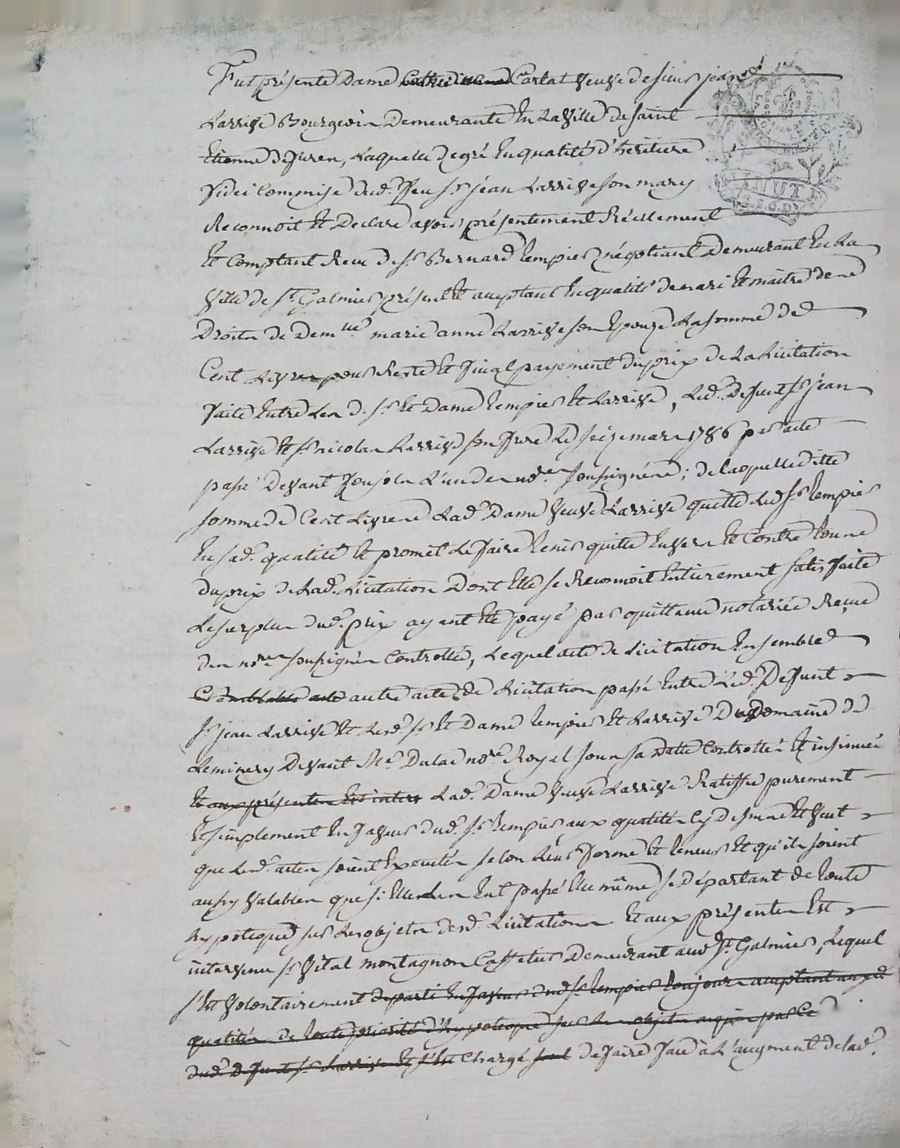 Fut présente Dame Carlat veuve de sieur jean
Larrive Bourgeois Demeurante En La Ville de saint
Etienne de furen, Laquelle de gré En qualité d'heritiere
fidei Commise dud. feu sr. jéan Larrive son mary
Reconnoit Et Declare avoir présentement Réellement
Et Comptant Recu de sr. Bernard tempier négotiant Demeurant En La
Ville de st. Galmier présent Et aceptant En qualité de mari Et maitre des
Droits de Demlle marie anne Larrive son Epouze La somme de
Cent Livres pour Reste Et final payement du prix de La Licitation
faite Entre Les d. srs Et Dame tempier Et Larrive, Led. Defunt sr. jéan
Larrive Et sr. nicolas Larrive son frere Le seize mars 1786 par acte
passé Devant L'un des nores soussignés; de laquelle ditte
somme de Cent Livres Lad. Dame Veuve Larrive quitte Led. sr. tempier
En sad. qualité Et promet Le faire tenir quitte Envers Et Contre tous
du prix de Lad. Licitation Dont Elle se Reconnoit Entierement satisfaite
Le surplus dud. prix ayant Eté payé par quittance notariée Recue
des nores soussignés Controllée, Lequel acte de Licitation Ensemble
autre acte de Licitation passé Entre Led. Defunt
sr. jean Larrive Et Lesd. sr. Et Dame tempier Et Larrive Du Domaine de
Leminery Devant Me. Dulac nore. Royal sous sa Datte Controllé Et insinué
Et aux présentes Est interv Lad. Dame Veuve Larrive Ratiffie purement
Et simplement En faveur dud. sr. tempier aux qualités cy dessus Et Veut
que Lesd. actes soient Executés selon Leur forme Et teneur Et qu'ils soient
aussy Valables que si Elle Les Eut passé Elle même, se départant de toute
hypotteque sur Les objets desd. Licitations Et aux présentes Est
intervenu sr. Vital montagnon Caffetier Demeurant aud. st. Galmier, Lequel
s'est Volontairement departi En faveur dud. sr. tempier toujours aceptant auxd.
qualités de toute priorité d'hypotteque sur Les objets aquis par Ce
dud. Defunt sr. Larrive Et s'est Chargé de faire face à L'augment de lad.
MINUTE